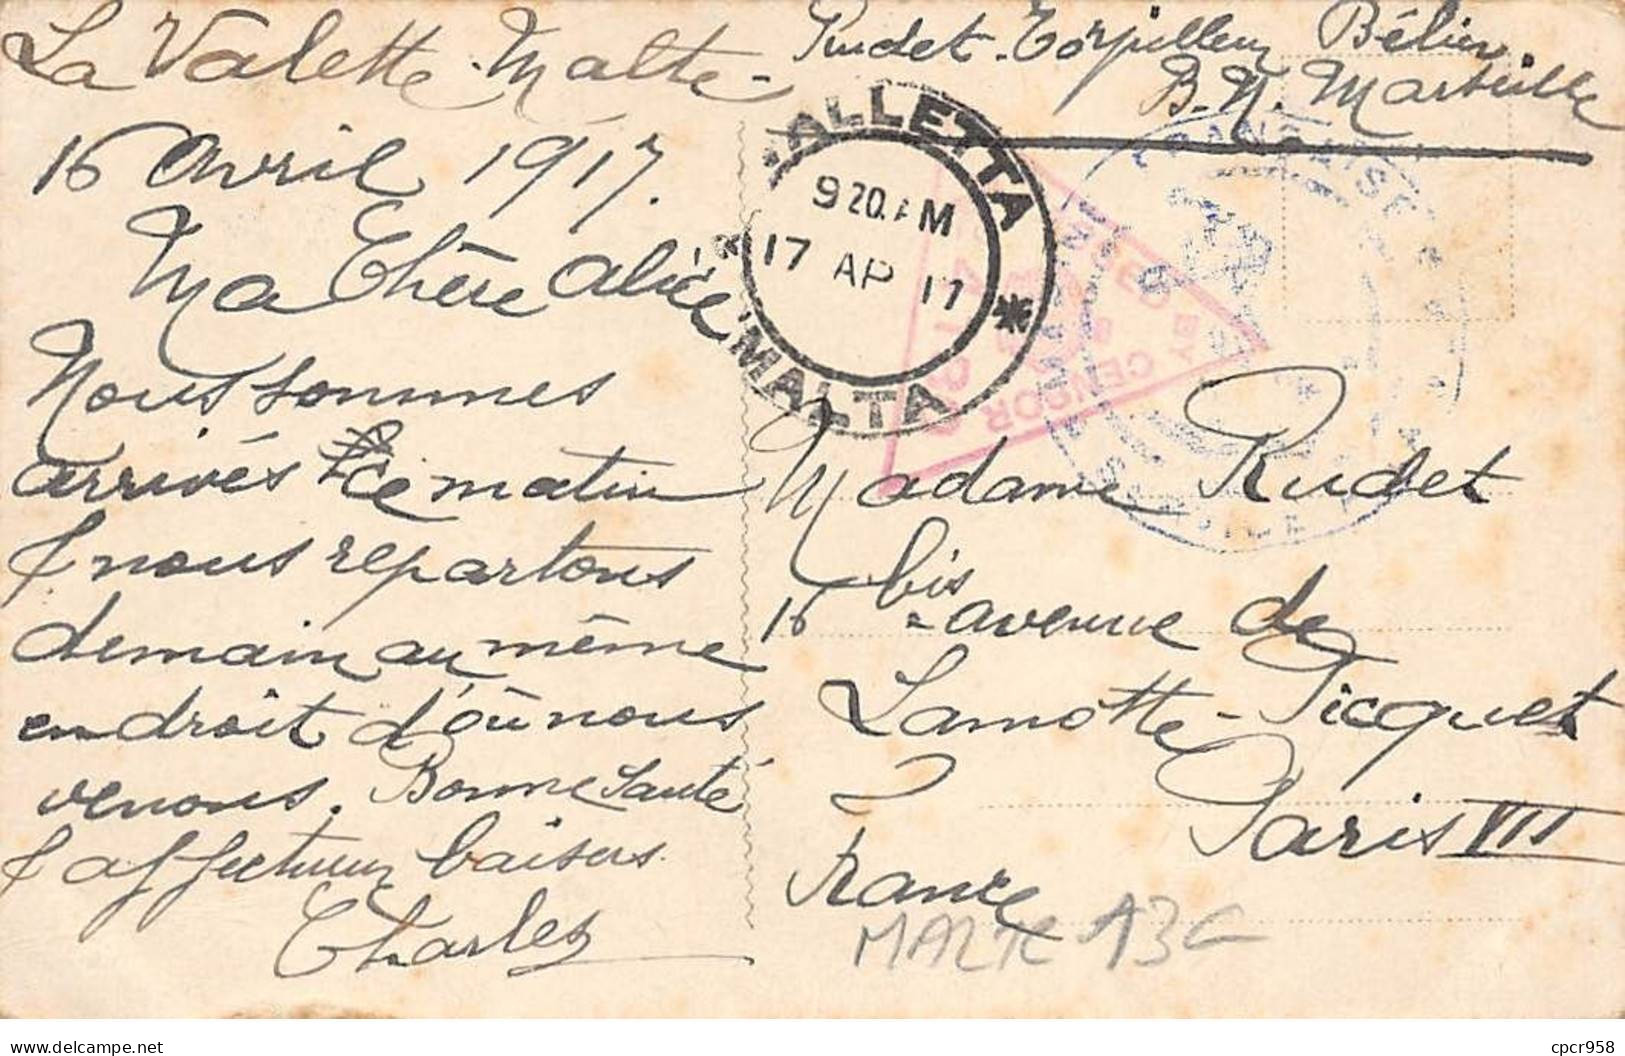 La Valette-Malte-
16 avril 1917.
Ma Chère Alice
Nous sommes
arrivés ce matin
& nous repartons
demain au même
endroit d'où nous
venons. Bonne santé
& affectueux baisers
Charles
Rudet-Torpilleur Bélier.
B.N. Marseille
VALLETTA
9 20 AM
17 AP 17
MALTA
CENSOR
BY
Madame Rudet
16 bis avenue de
Lamotte-Picquet
Paris VII
France
MALTE 13€
cpcr958